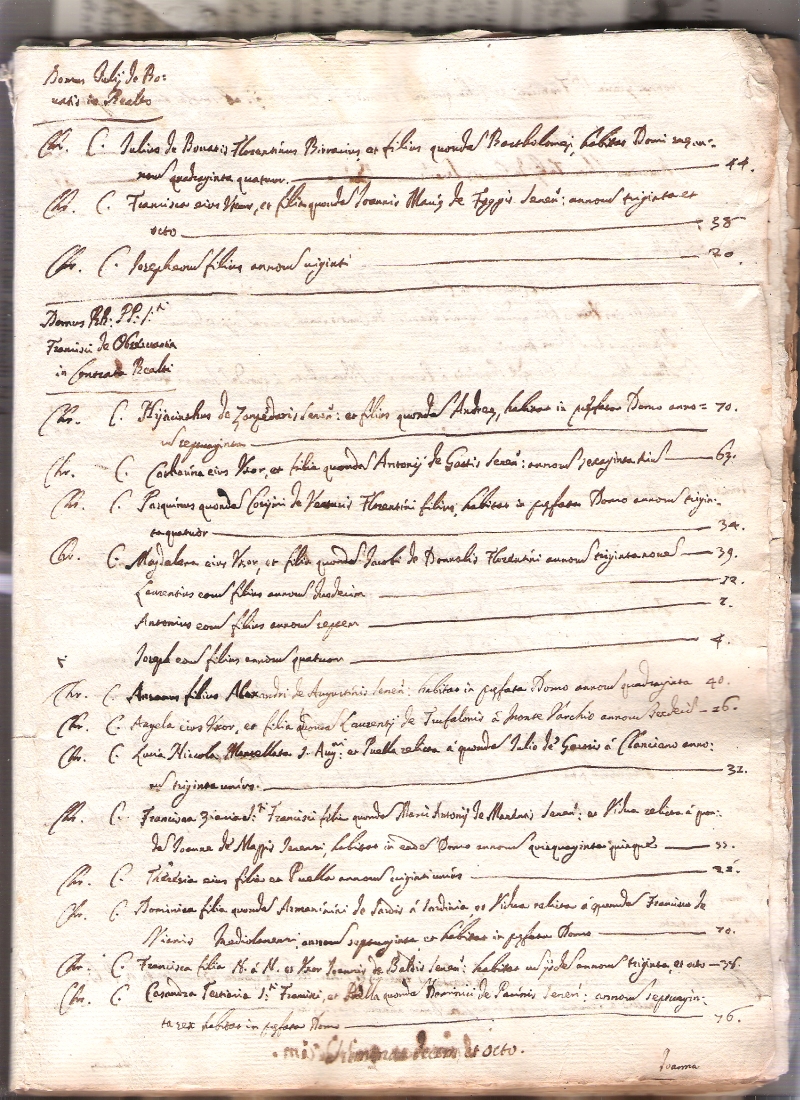 Domus Julij de Bo:
natis in Realto
Chr. C. Julius de Bonatis Florentinus Birrarius, et filius quondã Bartholomei, habitas Domi
quadraginta quatuor. 44.
Chr. C. Francisca eius Uxor, et filia quondã Joannis Mariæ de Senen: annorũ triginta et
octo 38
Chr. C. Josephus eorũ filius annorũ viginti 20.
Domus RR: PP: S.ti
Francisci de Observantia
in Contrada Realti
Chr. C. Hijacinthus de Senen: et filius quondã Andreæ, habitat in præfata Domo anno= 70.
rũ septuaginta
Chr. C. Catharina eius Uxor, et filia quondã Antonij de Senen: annorũ sexaginta 63.
Chr. C. Pasquinus quondã de Florentini filius, habitat in præfata Domo annorũ trigin:
taquatuor 34.
Chr. C. Magdalena eius Uxor, et filia quondã Jacobi de Florentini annorũ trigintanovẽ 39.
Laurentius eorũ filius annorũ duodecim 12.
Antonius eorũ filius annorũ septem 7.
Joseph eorũ filius annorũ quatuor 4.
Chr. C. filius Alexandri de Augustinis Senen: habitat in præfata Domo annorũ quadraginta 40.
Chr. C. Angela eius Uxor, et filia quondã Laurentij de à Monte Varchio annorũ 26.
Chr. C. Lucia Niccola Mantellata S. Aug.ni et Puella relicta à quondã Julio de à Clanciano anno:
rũ triginta unius. 31.
Chr. C. Francisca S.ti Francisci filia quondã Marci Antonij de Senen: et Vidua relicta à quon:
dã Joanne de Mappis Senensi, habitat in eadẽ Domo annorũ quinquaginta quinque 55.
Chr. C. Theresia eius filia et Puella annorũ viginti
Chr. C. Dominica filia quondã de à Sardinia, et Vidua relicta à quondã Francisco de
Mediolanensi, annorũ septuaginta et habitat in præfata Domo 70.
Chr. C. Francisca filia N. à N. et Uxor Joannis de Senen: habitat annorũ triginta, et octo 38.
Chr. C. Casandra Tertiaria S.ti Francisci, et Puella quondã Dominici de Senen: annorũ septuagin:
ta sex habitat in præfata Domo 76.
decem et octo.
Joanna